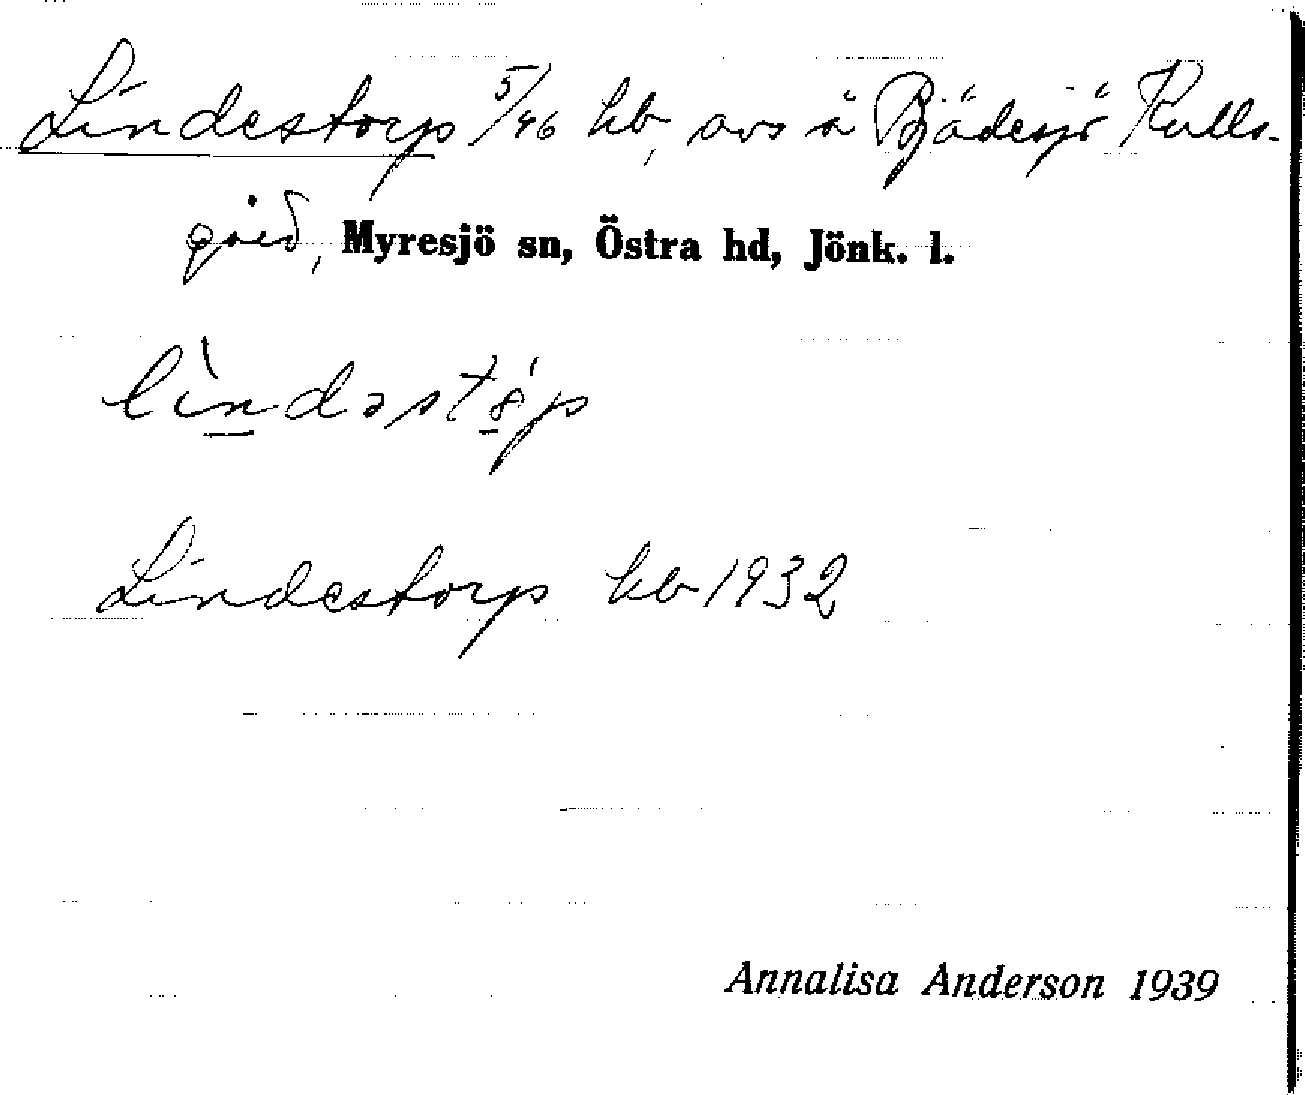 Lindestorp 5/96 hb, avs å Bjädesjö Kulls-
gård, Myresjö sn, Östra hd, Jönk. l.
Lindestorp hb 1932
Annalisa Anderson 1939